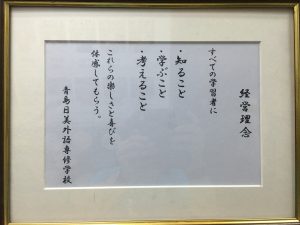 経営理念
すべての学習者に
・知ること
・学ぶこと
・考えること
これらの楽しさと喜びを
体感してもらう。
青島日美外語専修学校